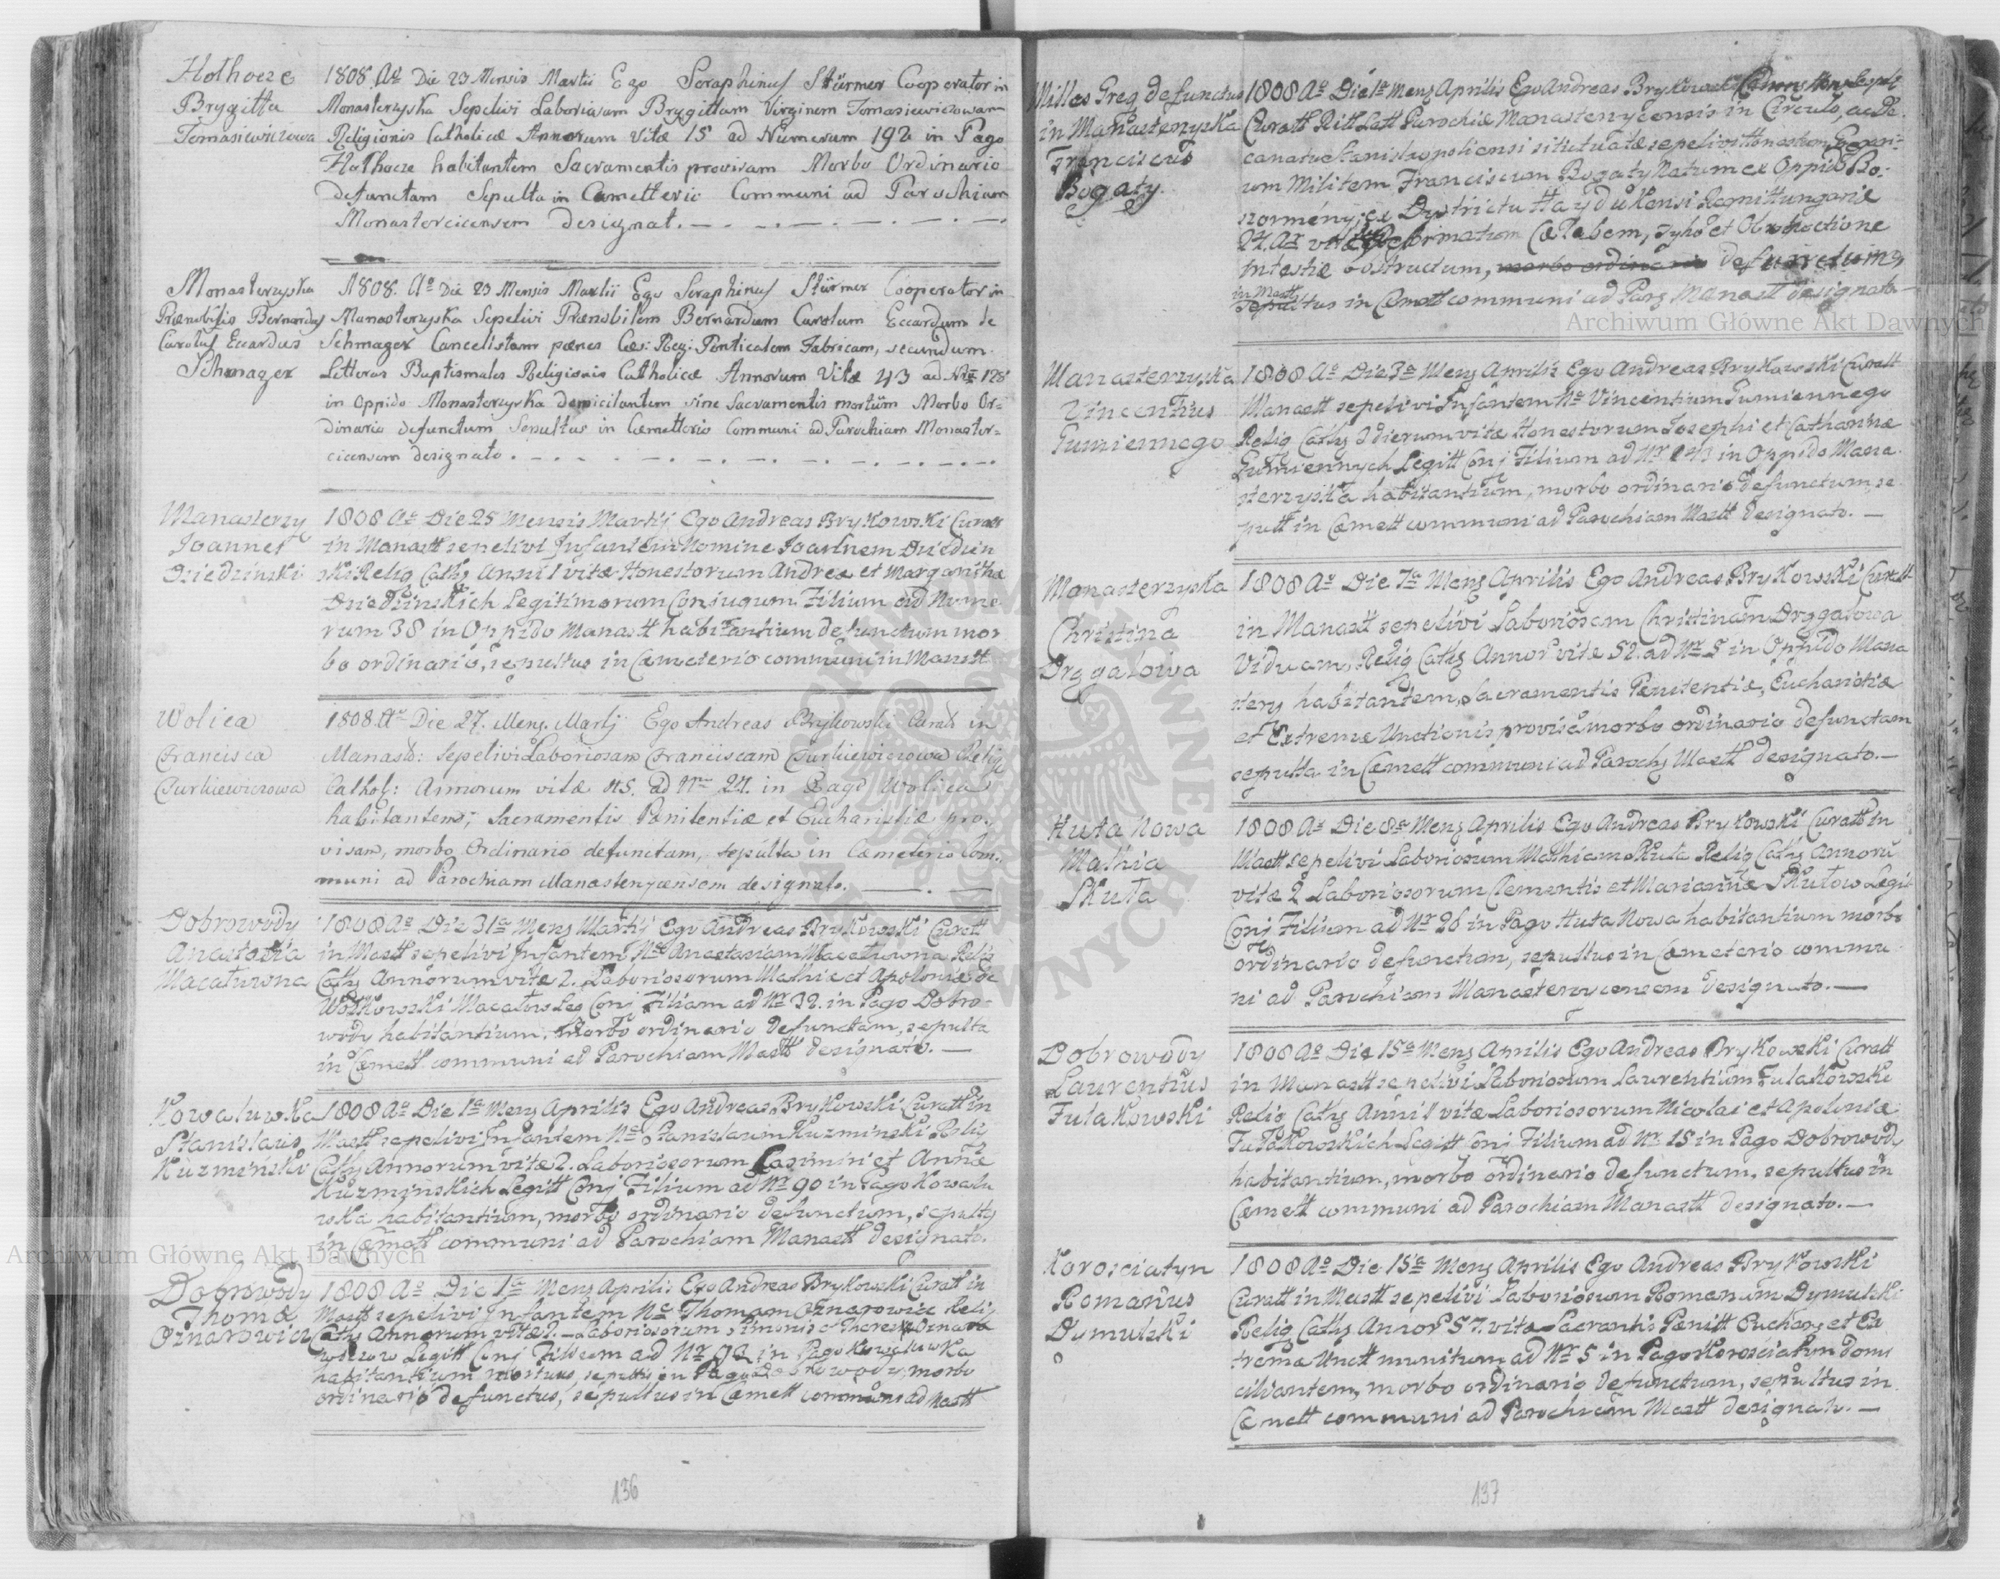 Hothocze
Brygitta
Tomasiewiczowa
1808. Ao Die 23 Mensis Martii Ego Seraphinus Stürmer Cooperator in
Monasterzyska Sepelivi Laboriosam Brygittam Virginem Tomasiewiczowam
Religionis Catholicæ Annorum Vitæ 15 ad Numerum 192 in Pago
Hothocze habitantem Sacramentis provisam Morbo Ordinario
defunctam Sepulta in Cæmetterio Communi ad Parochiam
Monastercicensem designat.
Monasterzyska
Prænobilis Bernardus
Carolus Eccardus
Schmager
1808. Ao Die 23 Mensis Martii Ego Seraphinus Stürmer Cooperator in
Monasterzyska Sepelivi Prænobilem Bernardum Carolum Eccardum de
Schmager Cancelistam penes Cæs: Reg: Fabricam, secundum
Litteras Baptismales Religionis Catholicæ Annorum Vitæ 43 ad Nrum 128
in Oppido Monasterzyska domicilantem sine Sacramentis mortuum Morbo Or-
dinario defunctum Sepultus in Cæmetterio Communi ad Parochiam Monaster-
cicensem designato.
Manasterzy
Joannes
Dziedzinski
1808 Ao Die 25 Mensis Martij Ego Andreas Brykowski Curatt
in Manastt sepelivi Infantem Nomine Joannem Dziedzin
ski Relig Cathj Anni 1 vitæ Honestorum Andreæ et Margarithæ
Dziedzinskich Legitimorum Conjugum Filium ad Nume
rum 38 in Oppido Manastt habitantium defunctum mor
bo ordinario, sepultus in Cæmeterio communi in Manstt
Wolica
Francisca
Curkiewiczowa
1808. Ao Die 27. Mens. Martj Ego Andreas Brykowski Curatt in
Manastt: sepelivi Laboriosam Franciscam Curkiewiczowa Relig
Cathol: Annorum vitæ 45. ad Nrm 27. in Pago Wolica
habitantem, Sacramentis Pænitentiæ et Eucharistiæ pro-
visam, morbo Ordinario defunctam, sepulta in Cæmeterio Com-
muni ad Parochiam Manasterycensem designato.
Dobrowody
Anastasia
Macatowna
1808 Ao Die 31a Mens Martij Ego Andreas Brykowski Curatt
in Mastt sepelivi Infantem Ne Anastasiam Macatowna Relig
Cathj Annorum vitæ 2. Laboriosorum Mathiæ et Apoloniæ de
Wolkowski Macatow Leg Conj Filiam ad Nr 39. in Pago Dobro-
wody habitantium, Morbo ordinario defunctam, sepulta
in Cæmett communi ad Parochiam Mastt designato.
Kowaluwka
Stanislaus
Kuzminski
1808 Ao Die 1a Mens Aprilis Ego Andreas Brykowski Curatt in
Mastt sepelivi Infantem Ne Stanislaum Kuzminski Relig
Cathj Annorum vitæ 2. Laboriosorum Casimiri et Annæ
Kuzminskich Legitt Conj Filium ad Nr 90 in Pago Kowalu
wka habitantium, morbo ordinario defunctum, sepultus
in Cæmett communi ad Parochiam Manastt designato.
Dobrowody
Thoma
Oznarowicz
1808 Ao Die 1a Mens Aprilis Ego Andreas Brykowski Curatt in
Mastt sepelivi Infantem Ne Thomam Oznarowicz Relig
Cathj Annorum vitæ Laboriosorum Simonis et Theresæ Oznaro
wiczow Legitt Conj Filium ad Nr 92 in Pago Kowaluwka
habitantium mortuus, sepultus in Pago Dobrowody, morbo
ordinario defunctus, sepultus in Cæmett communi ad Mastt
136
Milles Greg defunctus
in Manasterzyska
Franciscus
Bogaty
1808 Ao Die 1a Mens Aprilis Ego Andreas Brykowski
Curatt Ritt Latt Parochiæ Manasterycensis in Circulo, ac De-
canatu Stanislaopoliensi situatæ sepelivi Honestum Gregari-
um Militem Franciscum Bogaty Natum ex Oppido Bo-
szormény ex Dystrictu Haydukensi Regni Hungariæ
24. An vitæ Reformatum Cælebem, Typho et Obstructione
Intestiæ obstructum, morbo ordinario defunctum,
in Mastt
sepultus in Cæmett communi ad Par Manastt designato
Manasterzyska
Vincentius
Gumiennego
1808 Ao Die 3a Mens Aprilis Ego Andreas Brykowski Curatt
Manastt sepelivi Infantem Ne Vincentium Gumiennego
Relig Cathj 2 dierum vitæ Honestorum Josephi et Catharinæ
Gumiennych Legitt Conj Filium ad Nr 243 in Oppido Mana
sterzyska habitantium, morbo ordinario defunctum, se
pultt in Cæmett communi ad Parochiam Mastt designato.
Manasterzyska
Christina
Drygalowa
1808 Ao Die 7a Mens Aprilis Ego Andreas Brykowski Curatt
in Manastt sepelivi Laboriosam Christinam Drygalowa
Viduam, Relig Cathj Annor vitæ 52. ad Nr 5 in Oppido Mana
stery habitantem, Sacramentis Pænitentiæ, Eucharistiæ
et Extremæ Unctionis provisa morbo ordinario defunctam
sepulta in Cæmett communi ad Parochj Mastt designato.
Huta Nowa
Mathia
Skuta
1808 Ao Die 8a Mens Aprilis Ego Andreas Brykowski Curatt in
Mastt sepelivi Laboriosum Mathiam Skuta Relig Cathj Annorū
vitæ 2 Laboriosorum Clementis et Mariannæ Skutow Legit
Conj Filium ad Nr 26 in Pago Huta Nowa habitantium morbo
ordinario defunctum, sepultus in Cæmeterio commu
ni ad Parochiam Manasterycensem designato.
Dobrowody
Laurentius
Fulakowski
1808 Ao Die 15a Mens Aprilis Ego Andreas Brykowski Curatt
in Manastt sepelivi Laboriosum Laurentium Fulakowski
Relig Cathj Anni 1 vitæ Laboriosorum Nicolai et Apoloniæ
Fulakowskich Legitt Conj Filium ad Nr 15 in Pago Dobrowody
habitantium, morbo ordinario defunctum, sepultus in
Cæmett communi ad Parochiam Manastt designato.
Korosciatyn
Romanus
Dymulski
1808 Ao Die 15a Mens Aprilis Ego Andreas Brykowski
Curatt in Mastt sepelivi Laboriosum Romanum Dymulski
Relig Cathj Annor 57. vitæ Sacrantis Pænitt Eucharj et Ex
trema Unctt munitum ad Nr 5 in Pago Korosciatyn domi
ciliantem, morbo ordinario defunctum, sepultus in
Cæmett communi ad Parochiam Mastt designato.
137
Archiwum Główne Akt Dawnych
Archiwum Główne Akt Dawnych